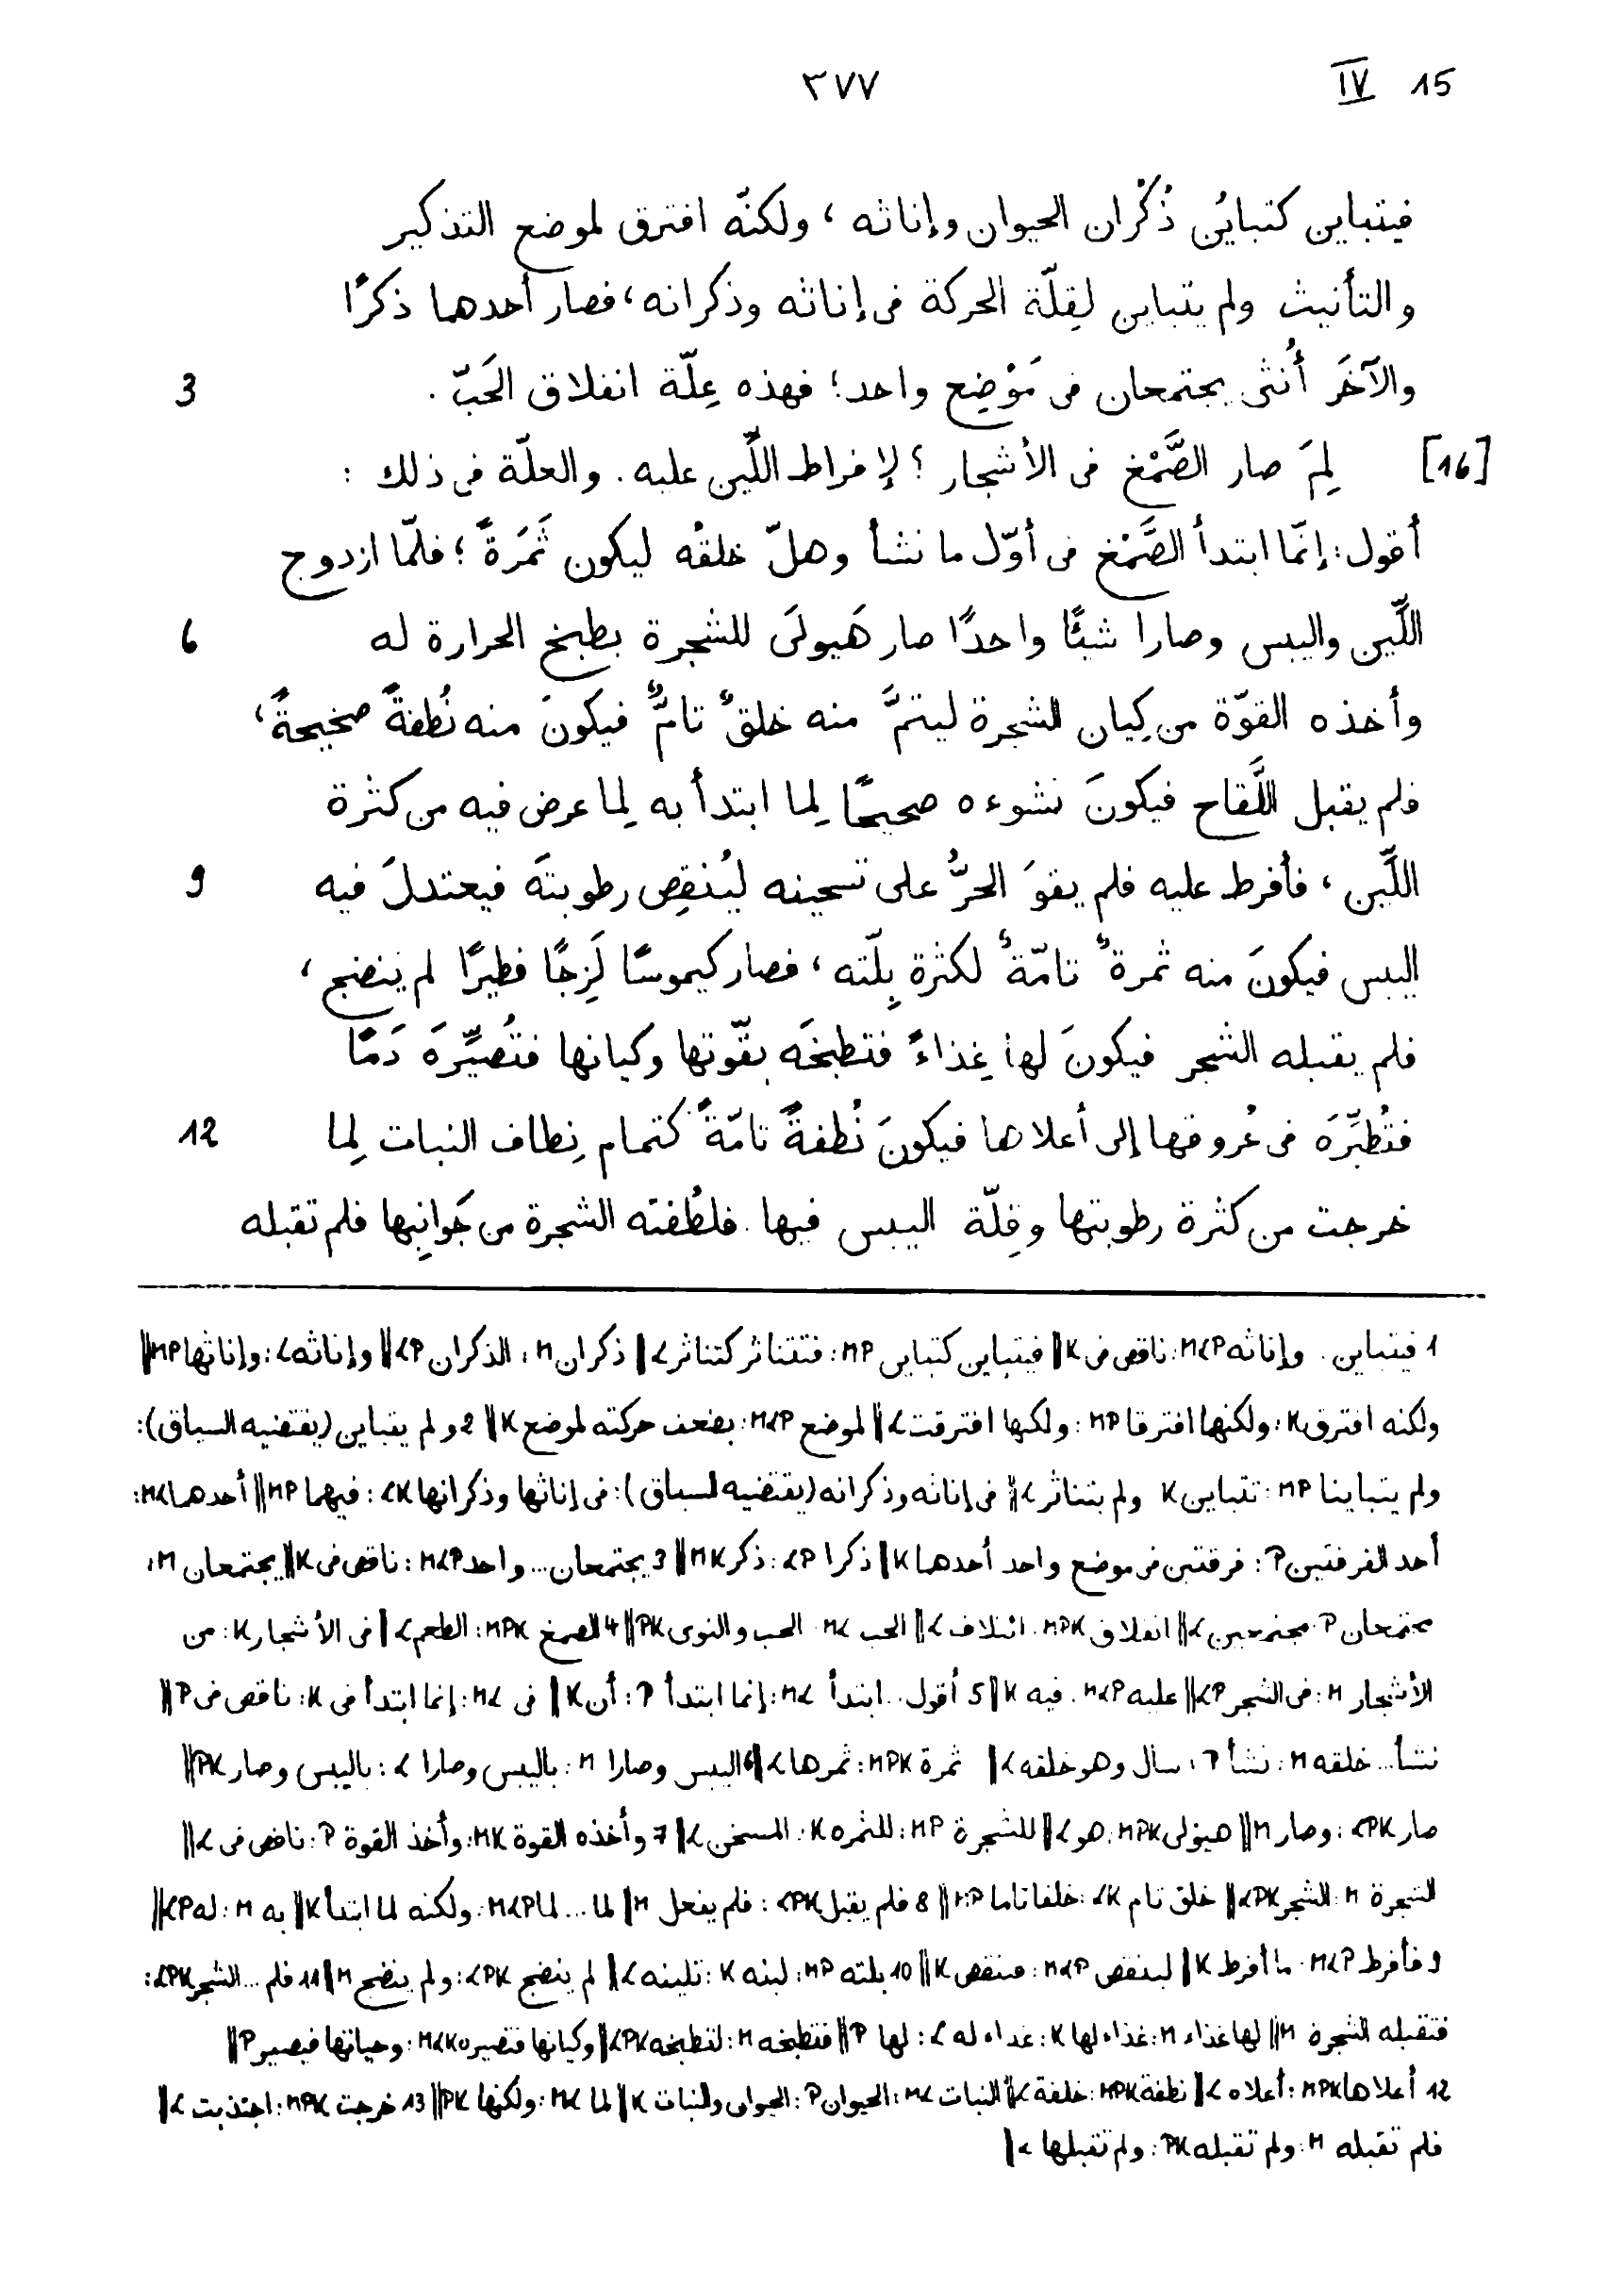 ٣٧٧ IV 15
فيتباين كتبايُن ذُكْران الحيوان وإناثه ، ولكنّه افترق لموضع التذكير
والتأنيث ولم يتباين لقِلّة الحركة فى إناثه وذكرانه، فصار أحدهما ذكرًا
والآخَر أُنثى يجتمعان فى مَوْضِع واحد؛ فهذه عِلّة انفلاق الحَبّ . 3
[16] لِمَ صار الصَّمْغ فى الأشجار ؟ لإفراط اللِّين عليه. والعلّة فى ذلك :
أقول: إنّما ابتدأ الصَّمْغ فى أوّل ما نشأ وهلّ خلقُه ليكون ثَمَرةً ؛ فلمّا ازدوج
اللِّين واليبس وصارا شيئًا واحدًا صار هَيولَى للشجرة بطبخ الحرارة له 6
وأخذه القوّة من كِيان الشجرة ليتمَّ منه خلقٌ تامٌّ فيكونَ منه نُطفةً صحيحةً،
فلم يقبل اللَّقاح فيكونَ نشوءه صحيحًا لِما ابتدأ به لِما عرض فيه من كثرة
اللِّين ، فأفرط عليه فلم يقوَ الحرُّ على تسخينه ليُنقِص رطوبتَه فيعتدلَ فيه 9
اليبس فيكونَ منه ثمرةٌ تامّةٌ لكثرة بِلّته ، فصار كيموسًا لَزِجًا فطيرًا لم ينضج ،
فلم يقبله الشجر فيكونَ لها غِذاءً فتطبخَه بقّوتها وكيانها فتُصيِّرَه دَمًا
فتُطيِّرَه فى عُروقها إلى أعلاها فيكونَ نُطفةً تامّةً كتمام نِطاف النبات لِما 12
خرجت من كثرة رطوبتها وقِلّة اليبس فيها. فلطُفته الشجرة من جَوانِبها فلم تقبله
1 فيتباين . وإناثه M<P: ناقص فى K‖ فيتباين كتباين MP: فتتناثر كتناثر >‖ ذكران M: الذكران P>‖ وإناثه >: وإناثها MP‖
ولكنه افترق K: ولكنها افترقا MP: ولكها افترقت >‖ لموضع M<P: بضعف حركته لموضع K‖ 2 ولم يتباين (يقتضيه السياق):
ولم يتباينا MP: تتباين K ولم يتناثر >‖ فى إناثه وذكرانه (يقتضيه السياق): فى إناثها وذكرانها >K: فيهما MP‖ أحدهما M<:
أحد الفرقتين P: فرقتين فى موضع واحد أحدهما K‖ ذكرا P>: ذكر MK‖ 3 يجتمعان... واحد M<P: ناقص فى K‖ يجتمعان M:
مجتمعان P: مجتمعين >‖ انفلاق MPK: ائتلاف >‖ الحب M<: الحب والنوى PK‖ 4 الصمغ MPK: الطعم >‖ فى الأشجار K: من
الأشجار M: فى الشجر P>‖ عليه M<P: فيه K‖ 5 أقول.. ابتدأ M<: إنما ابتدأ P: أن K‖ فى M<: إنما ابتدأ فى K: ناقص فى P‖
نشأ... خلقه M: نشأ P: سال وهو خلقه >‖ ثمرة MPK: ثمرها >‖ 6 اليبس وصارا M: باليبس وصارا >: باليبس وصار PK‖
صار >PK: وصار M‖ هيولى MPK: هو >‖ للشجرة MP: للثمره K: المسخن >‖ 7 وأخذه القوة MK: وأخذ القوة P: ناقص فى >‖
الشجرة M: الشجر >PK‖ خلق تام >K: خلقا تاما MP‖ 8 فلم يقبل >PK: فلم يفعل M‖ لما... لما M<P: ولكنه لما ابتدأ K‖ به M: له >P‖
9 فأفرط M<P: ما أفرط K‖ لينقص M<P: فنقص K‖ 10 بلته MP: لينه K: تليينه >‖ لم ينضج >PK: ولم ينضج M‖ 11 فلم... الشجر >PK:
فتقبله الشجرة M‖ لها غذاء M: غذاء لها K: غداء له >: لها P‖ فتطبخه M: لتطبخه >PK‖ وكيانها فتصيره M<K: وحياتها فيصير P‖
12 أعلاها MPK: أعلاه >‖ نطفة MPK: خلفة >‖ النبات M<: الحيوان P: الحيوان والنبات K‖ لما M<: ولكنها PK‖ 13 خرجت MPK: اجتذبت >‖
فلم تقبله M: ولم تقبله PK: ولم تقبلها >‖